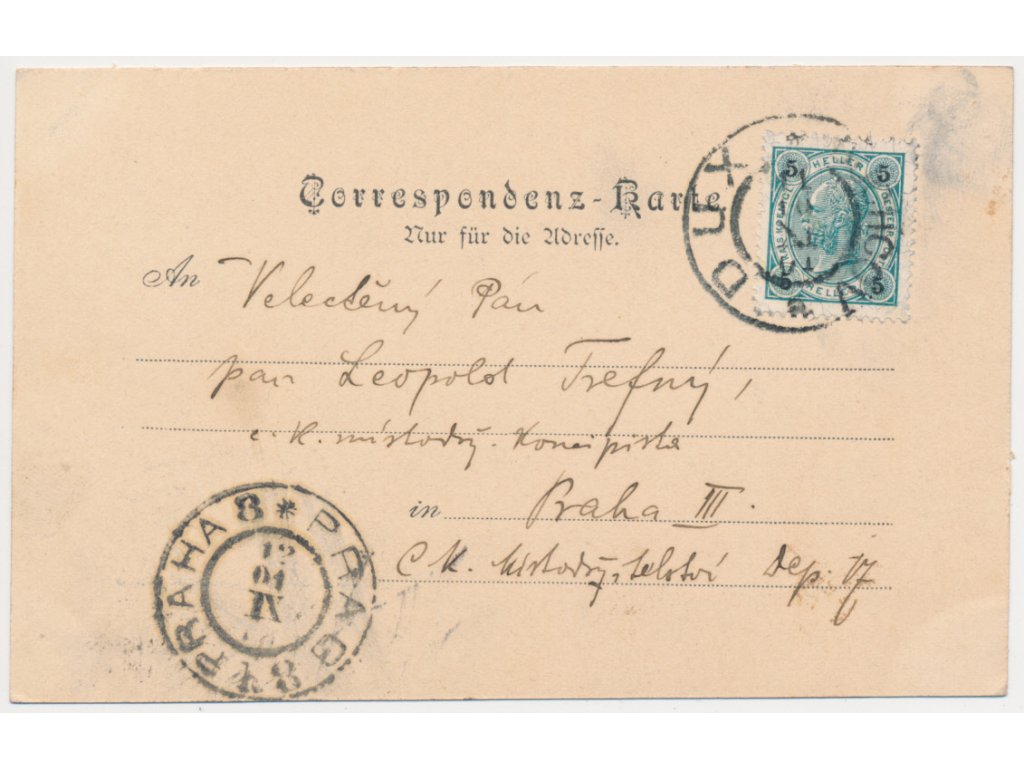 Correspondenz-Karte.
Nur für die Adresse.
An Velectěný Pán
pan Leopold Trefný,
c. k. místodrž. koncipista
in Praha III.
C K. Místodržitelství Dep. 17
DUX
5 HELLER 5
5 HELLER 5
PRAHA 8 * PRAG 8
12
IX